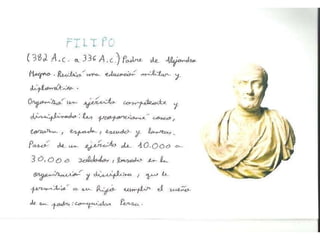 FILIPO
(382 A.C. a 336 A.C.) Padre de Alejandro
Magno. Recibió una educación militar y
diplomática.
Organizó un ejército competente y
disciplinado: les proporcionó casco,
coraza, espada, escudo y lanzas.
Pasó de un ejército de 10.000 a
30.000 soldados, basado en la
organización y disciplina, que le
permitió a su hijo cumplir el sueño
de su padre: conquistar Persia.